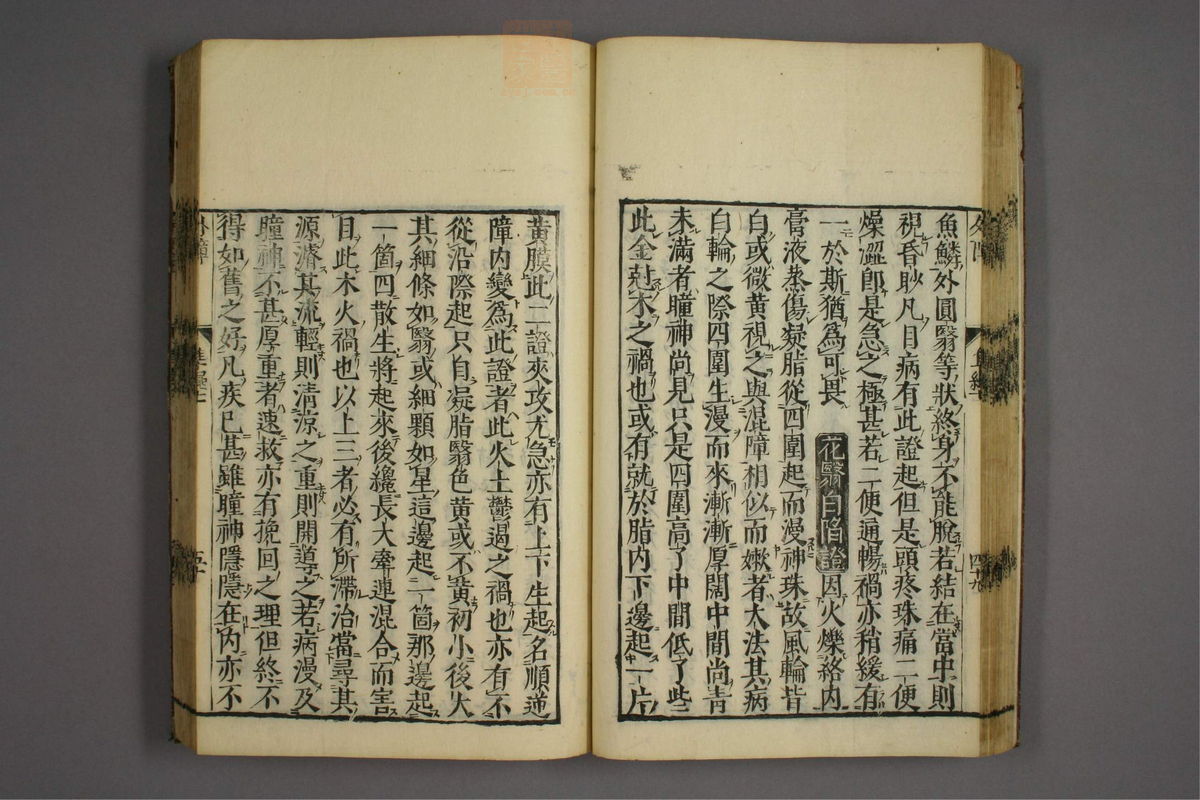 魚鱗外圓翳等狀終身不能脫若結在當中則
視昏眇凡目病有此證起但是頭疼珠痛二便
燥澀卽是急之極甚若二便通暢禍亦稍緩有
一於斯猶爲可畏 花翳白陷證 因火爍絡內
膏液蒸傷凝脂從四圍起而漫神珠故風輪皆
白或微黃視之與混障相似而嫩者大法其病
白輪之際四圍生漫而來漸漸厚闊中間尚靑
未滿者瞳神尚見只是四圍高了中間低了些
此金尅木之禍也或有就於脂內下邊起一片
黃膜此二證夾攻尤急亦有上下生起名順逆
障內變爲此證者此火土鬱遏之禍也亦有不
從沿際起只自凝脂翳色黃或不黃初小後大
其細條如翳或細顆如星這邊起一箇那邊起
一箇四散生將起來後纔長大牽連混合而害
目此木火禍也以上三者必有所滯治當尋其
源濬其流輕則清涼之重則開導之若病漫及
瞳神不甚厚重者速救亦有挽回之理但終不
得如舊之好凡疾已甚雖瞳神隱隱在內亦不
外障
五十
四九